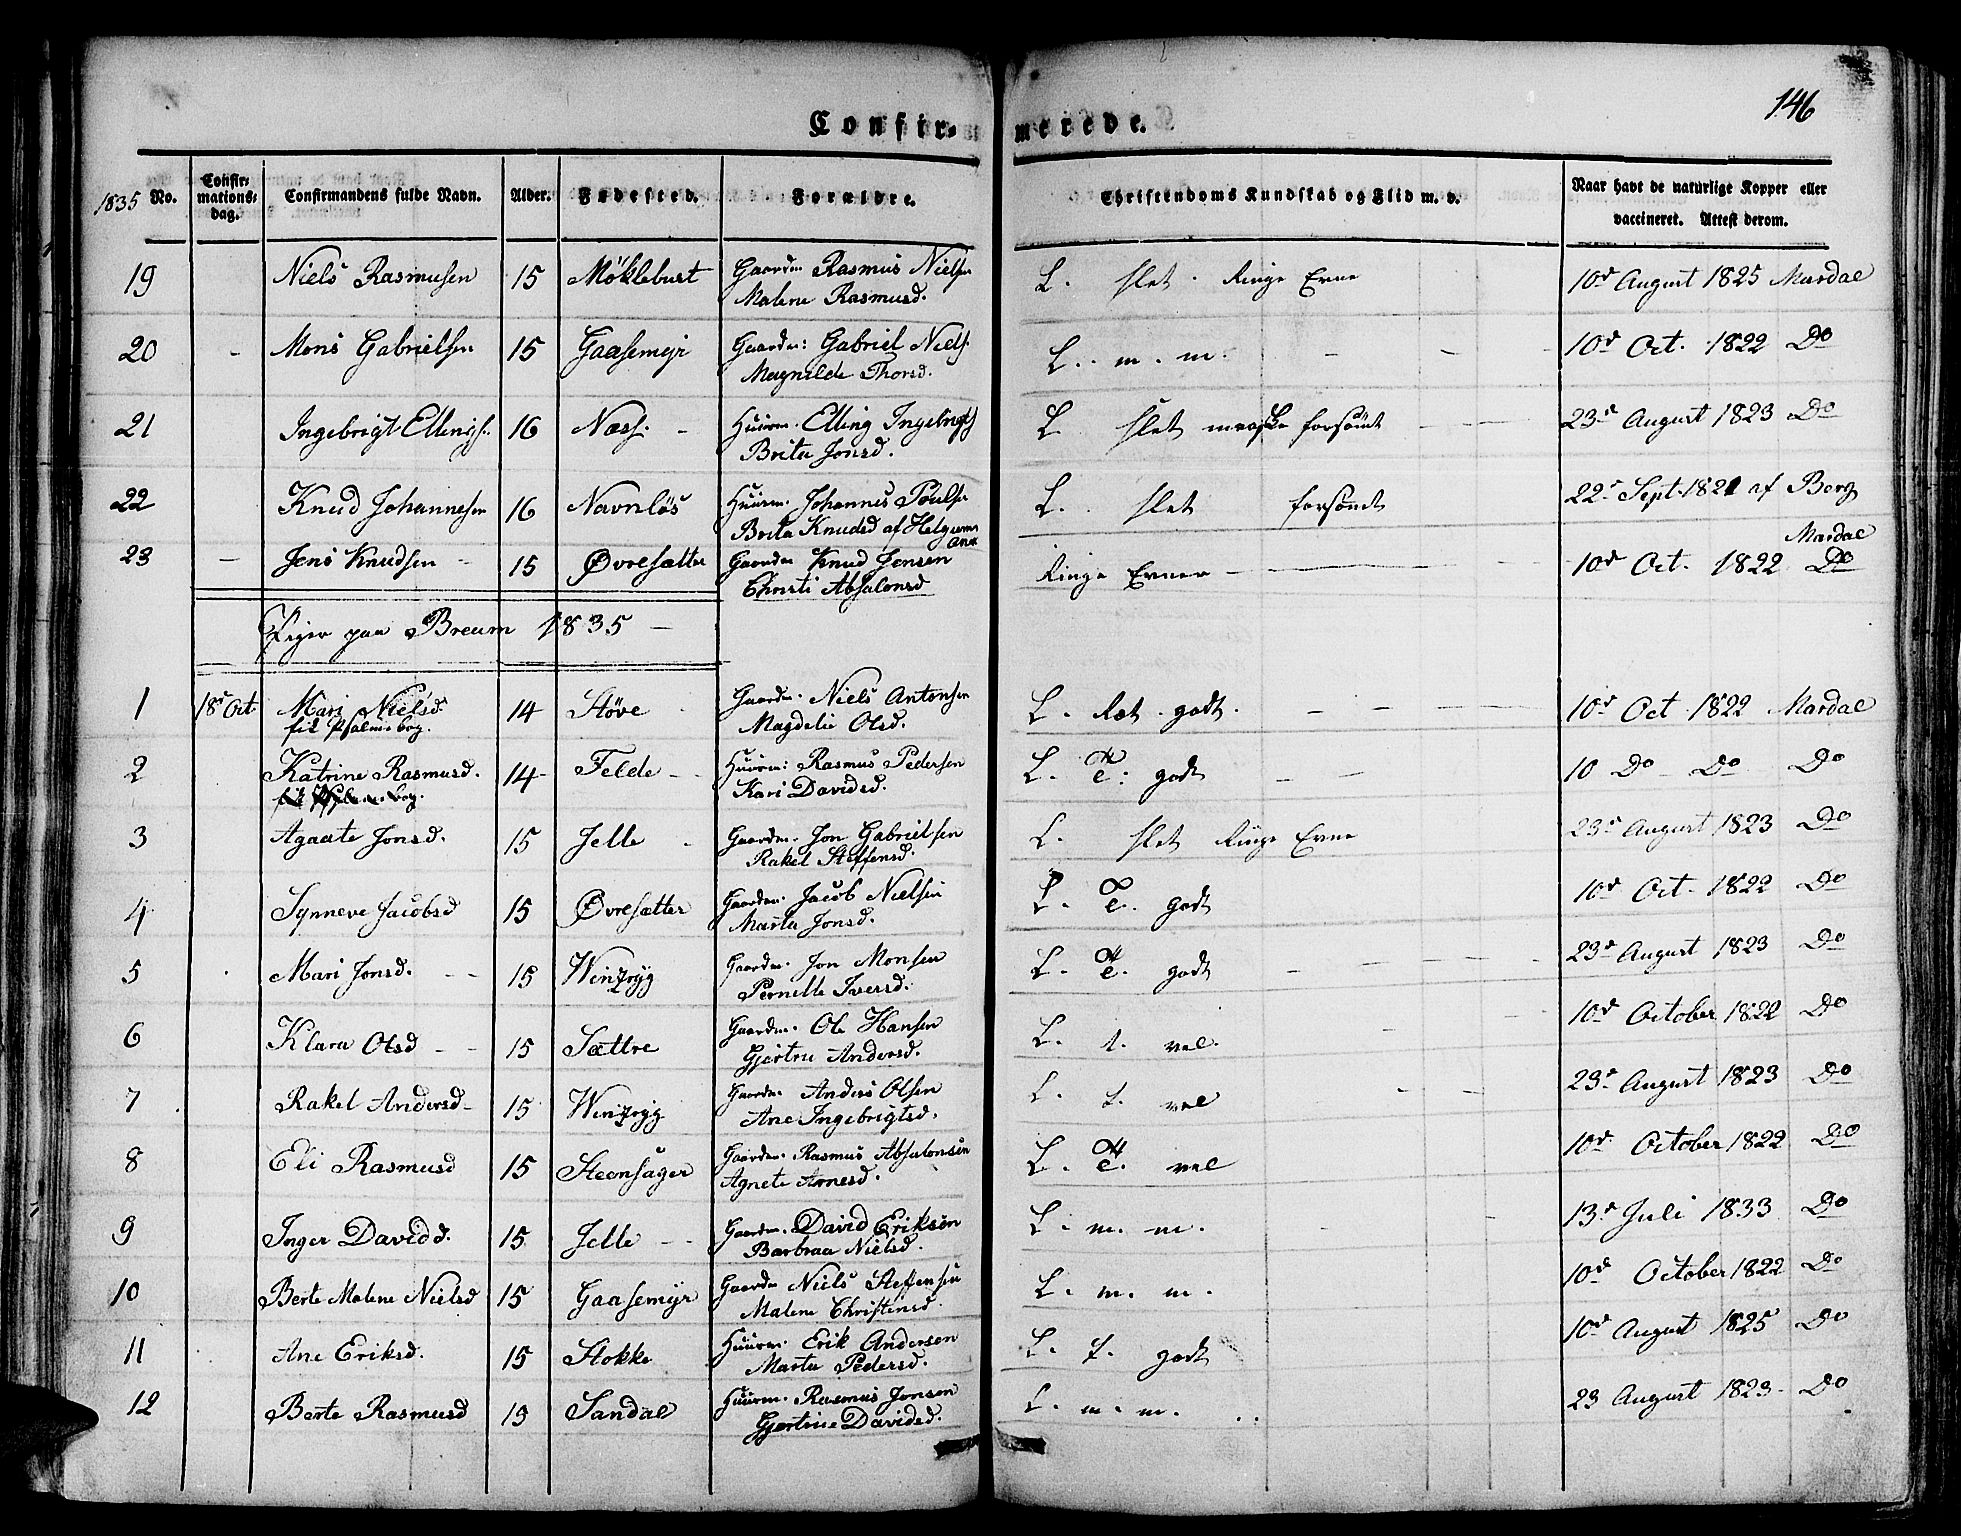 146
Confirmerede.
1835 No. Confirmations-dag. Confirmandens fulde Navn. Alder. Fødested. Forældre. Christendoms Kundskab og Flid m. v. Naar havt de naturlige Kopper eller vaccineret. Attest derom.
19 Niels Rasmusen 15 Møklebust Gaardm Rasmus Nielsen Malene Rasmusd. L. slet. Ringe Evne 10d August 1825 Mardal
20 - Mons Gabrielsen 15 Gaasemyr Gaardm: Gabriel Niels. Magnilde Thorsd. L. m. m. 10d Oct. 1822 Do
21 Ingebrigt Ellings. 16 Næss. Huusm. Elling Ingebrigts Brita Jonsd. L slet meget forsømt 23d August 1823 Do
22 Knud Johannesen 16 Navnløs Huusm. Johannes Poulse Brita Knudsd af Helgums Anx L. slet forsømt 22d Sept. 1821 af Berg
23 - Jens Knudsen 15 Øvresætter Gaardm Knud Jensen Christi Absalonsd Ringe Evner 10d Oct. 1822 Mardal Do
Piger paa Breum 1835
1 18d Oct Mari Nielsd. 14 Støve Gaardm. Niels Antonsen Magdeli Olsd. L. Ret godt. 10d Oct 1822 Mardal
fik Psalmebog.
2 Katrine Rasmusd. 14 Felde Huusm: Rasmus Pedersen Kari Davidsd. L. T. godt 10 Do Do Do
fik Psalmebog.
3 Agaate Jonsd. 15 Jelle Gaardm. Jon Gabrielsen Rakel Steffensd. L. slet Ringe Evne 23d August 1823 Do
4 Synneve Jacobsd 15 Øvresætter Gaardm. Jacob Nielsen Marta Jonsd. L. T. godt 10d Oct. 1822 Do
5 Mari Jonsd. 15 Wenzryg Gaardm. Jon Monsen Pernelle Iversd. L. T. godt 23d August 1823 Do
6 Klara Olsd 15 Sættre Gaardm. Ole Hansen Gjertru Andersd. L. t. vel. 10d October 1822 Do
7 Rakel Andersd 15 Wenzryg Gaardm. Anders Olsen Ane Ingebrigtsd. L. t. vel 23d August 1823 Do
8 Eli Rasmusd 15 Steensager Gaardm. Rasmus Absalonsen Agnete Arnesd. L. T. vel 10d October 1822 Do
9 Inger Davidd. 15 Jelle Gaardm. David Eriksen Barbraa Nielsd. L. m. m. 13d Juli 1833 Do
10 Berte Malene Nielsd 15 Gaasemyr Gaardm Niels Steffensen Malene Christensd. L. m. m. 10d October 1822 Do
11 Ane Eriksd. 15 Stokke Huusm: Erik Andersen Marta Pedersd. L. t. godt 10d August 1825 Do
12 Berte Rasmusd 15 Sandal Huusm. Rasmus Jonsen Gjertine Davidsd. L. m. m. 23 August 1823 Do